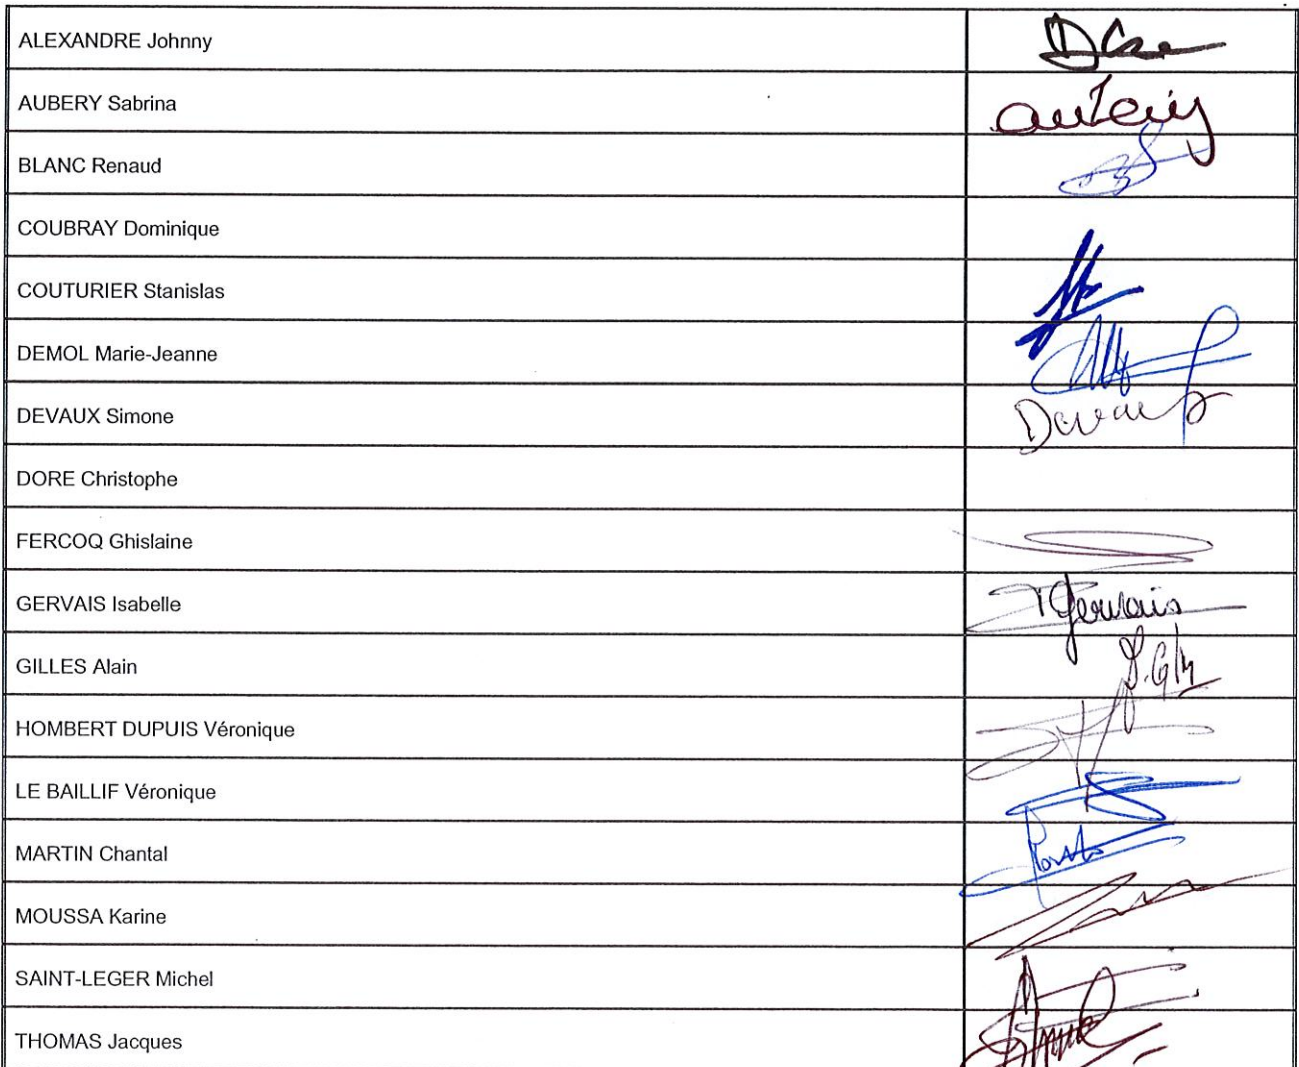 ALEXANDRE Johnny
AUBERY Sabrina aubery
BLANC Renaud
COUBRAY Dominique
COUTURIER Stanislas
DEMOL Marie-Jeanne
DEVAUX Simone Devaux
DORE Christophe
FERCOQ Ghislaine
GERVAIS Isabelle Gervais
GILLES Alain
HOMBERT DUPUIS Véronique
LE BAILLIF Véronique
MARTIN Chantal
MOUSSA Karine
SAINT-LEGER Michel
THOMAS Jacques